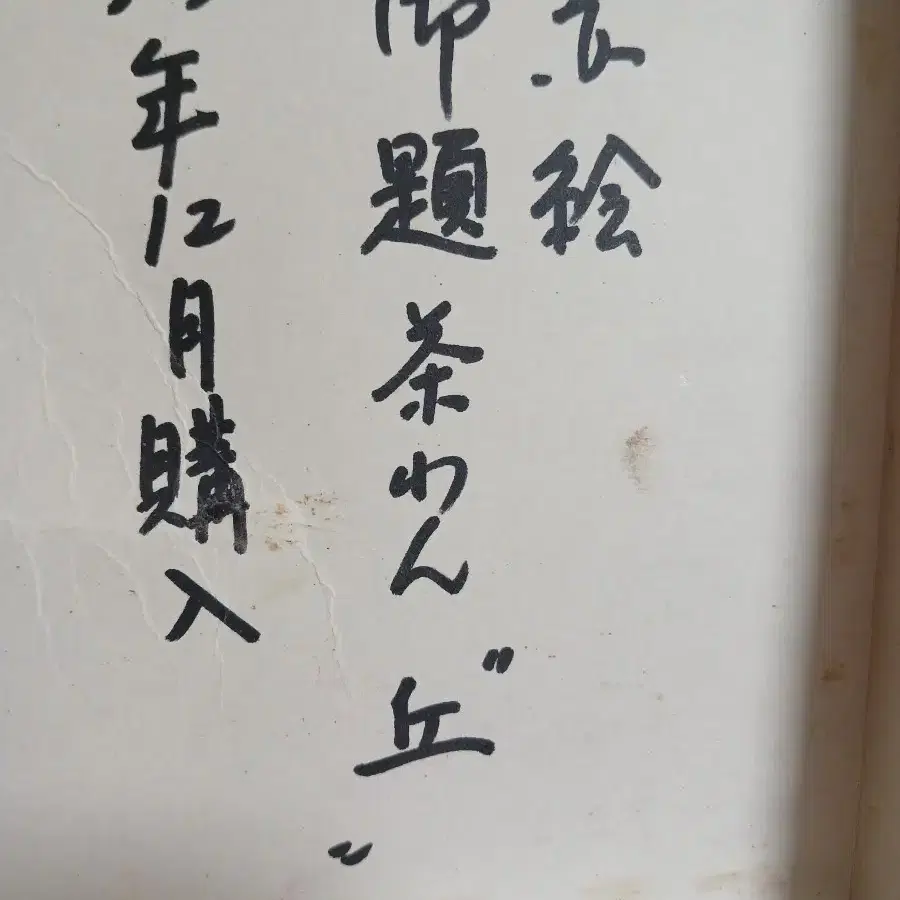 絵
御題 茶わん〝丘〟
年12月購入